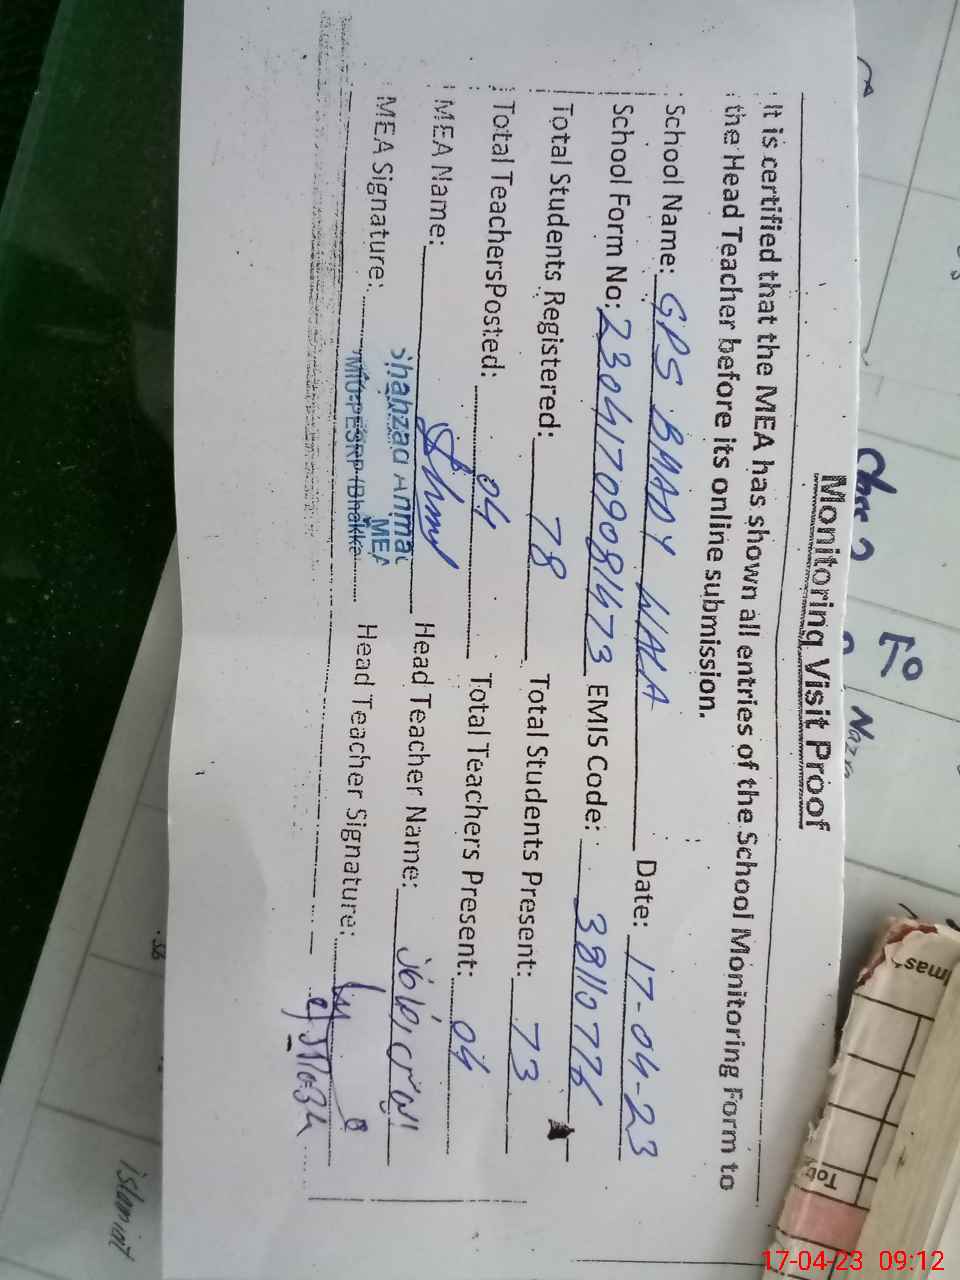 Monitoring Visit Proof
It is certified that the MEA has shown all entries of the School Monitoring Form to
the Head Teacher before its online submission.
School Name: GPS BAADY WALA Date: 17-04-23
School Form No: 23041709081473 EMIS Code: 38110776
Total Students Registered: 78 Total Students Present: 73
Total TeachersPosted: 04 Total Teachers Present: 04
MEA Name: Head Teacher Name:
Shahzad Ahmad
MEA
MEA Signature: Head Teacher Signature:
MIU-PESRP (Bhakkar
To
islamiat
17-04-23 09:12